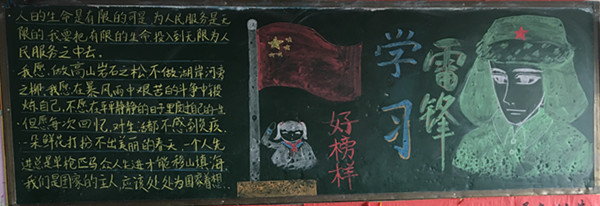 人的生命是有限的可是 为人民服务是无
限的我要把有限的生命投入到无限为人
民服务之中去。
我愿做高山岩石之松不做湖岸河旁
之柳我愿在暴风雨中艰苦的斗争中锻
炼自己，不愿在平平静静的日子里度过自己的一生
但愿每次回忆，对生活都不感到负疚．
一朵鲜花打扮不出美丽的春天，一个人先
进总是单枪匹马众人先进才能移山填海
我们是国家的主人，应该处处为国家着想
好榜样
学习
雷锋